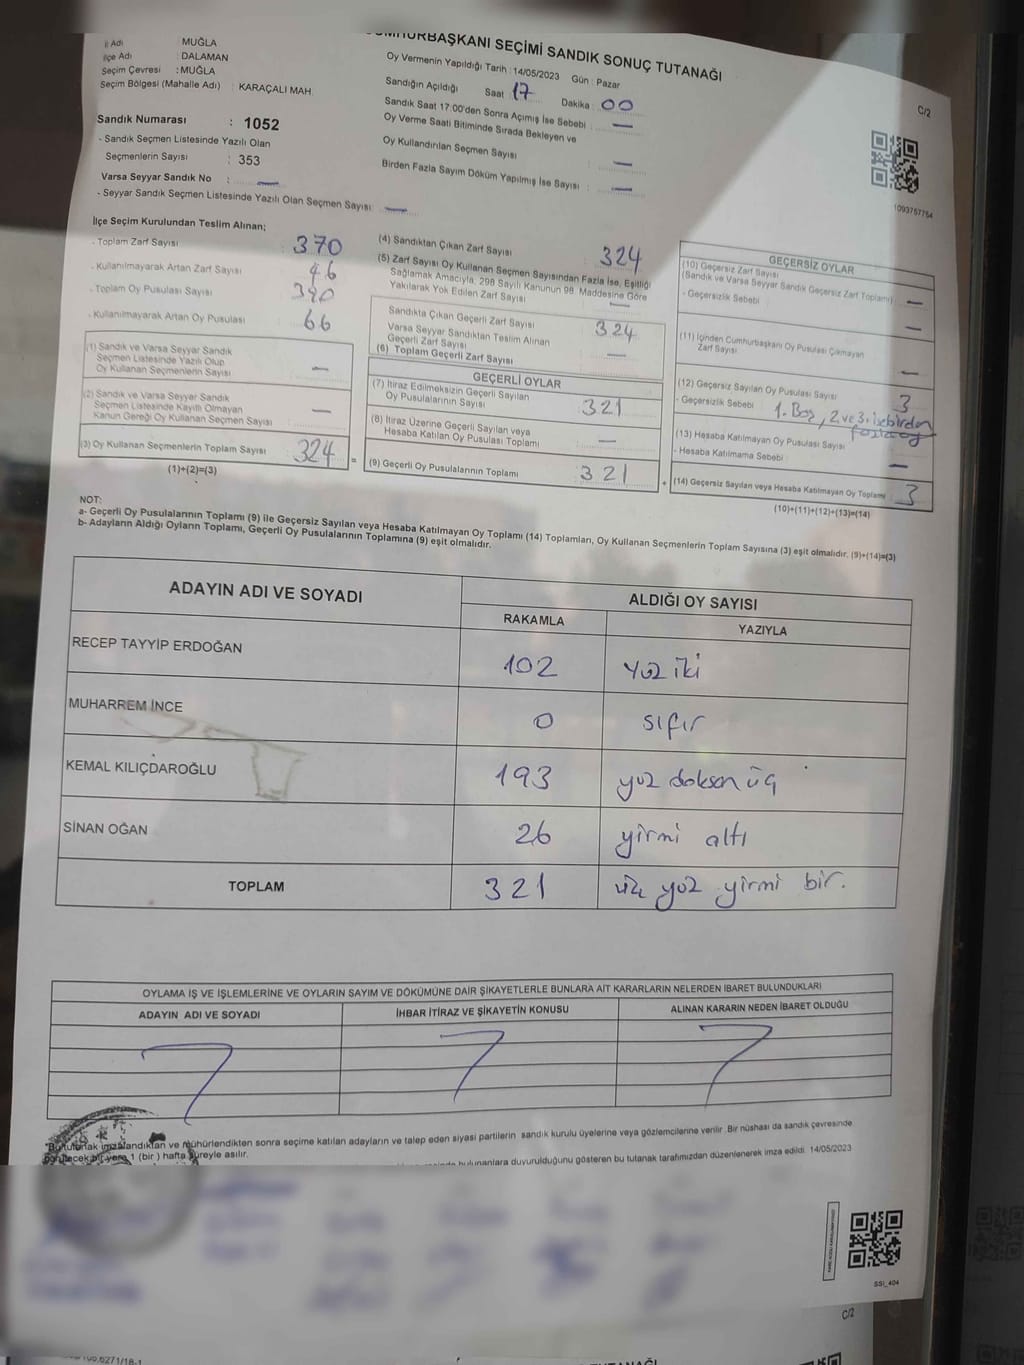 CUMHURBAŞKANI SEÇİMİ SANDIK SONUÇ TUTANAĞI
İl Adı : MUĞLA
İlçe Adı : DALAMAN
Seçim Çevresi : MUĞLA
Seçim Bölgesi (Mahalle Adı) : KARAÇALI MAH.
Sandık Numarası : 1052
- Sandık Seçmen Listesinde Yazılı Olan
Seçmenlerin Sayısı : 353
Varsa Seyyar Sandık No : —
- Seyyar Sandık Seçmen Listesinde Yazılı Olan Seçmen Sayısı: —
Oy Vermenin Yapıldığı Tarih : 14/05/2023 Gün : Pazar
Sandığın Açıldığı Saat 17 Dakika : 00
Sandık Saat 17:00'den Sonra Açımış İse Sebebi : —
Oy Verme Saati Bitiminde Sırada Bekleyen ve
Oy Kullandırılan Seçmen Sayısı : —
Birden Fazla Sayım Döküm Yapılmış İse Sayısı : —
C/2
1093757754
İlçe Seçim Kurulundan Teslim Alınan;
- Toplam Zarf Sayısı : 370
- Kullanılmayarak Artan Zarf Sayısı : 46
- Toplam Oy Pusulası Sayısı : 390
- Kullanılmayarak Artan Oy Pusulası : 66
(1) Sandık ve Varsa Seyyar Sandık
Seçmen Listesinde Yazılı Olup
Oy Kullanan Seçmenlerin Sayısı : —
(2) Sandık ve Varsa Seyyar Sandık
Seçmen Listesinde Kayıtlı Olmayan
Kanun Gereği Oy Kullanan Seçmen Sayısı : —
(3) Oy Kullanan Seçmenlerin Toplam Sayısı : 324
(1)+(2)=(3)
(4) Sandıktan Çıkan Zarf Sayısı : 324
(5) Zarf Sayısı Oy Kullanan Seçmen Sayısından Fazla İse, Eşitliği
Sağlamak Amacıyla, 298 Sayılı Kanunun 98. Maddesine Göre
Yakılarak Yok Edilen Zarf Sayısı : —
Sandıkta Çıkan Geçerli Zarf Sayısı : 324
Varsa Seyyar Sandıktan Teslim Alınan
Geçerli Zarf Sayısı : —
(6) Toplam Geçerli Zarf Sayısı
GEÇERLİ OYLAR
(7) İtiraz Edilmeksizin Geçerli Sayılan
Oy Pusulalarının Sayısı : 321
(8) İtiraz Üzerine Geçerli Sayılan veya
Hesaba Katılan Oy Pusulası Toplamı : —
= (9) Geçerli Oy Pusulalarının Toplamı : 321 +
GEÇERSİZ OYLAR
(10) Geçersiz Zarf Sayısı
(Sandık ve Varsa Seyyar Sandık Geçersiz Zarf Toplamı) : —
- Geçersizlik Sebebi : —
(11) İçinden Cumhurbaşkanı Oy Pusulası Çıkmayan
Zarf Sayısı : —
(12) Geçersiz Sayılan Oy Pusulası Sayısı : 3
- Geçersizlik Sebebi : 1. Boş, 2. ve 3. ise birden
fazla oy
(13) Hesaba Katılmayan Oy Pusulası Sayısı
- Hesaba Katılmama Sebebi : —
(14) Geçersiz Sayılan veya Hesaba Katılmayan Oy Toplamı : 3
(10)+(11)+(12)+(13)=(14)
NOT:
a- Geçerli Oy Pusulalarının Toplamı (9) ile Geçersiz Sayılan veya Hesaba Katılmayan Oy Toplamı (14) Toplamları, Oy Kullanan Seçmenlerin Toplam Sayısına (3) eşit olmalıdır. (9)+(14)=(3)
b- Adayların Aldığı Oyların Toplamı, Geçerli Oy Pusulalarının Toplamına (9) eşit olmalıdır.
ADAYIN ADI VE SOYADI ALDIĞI OY SAYISI
RAKAMLA YAZIYLA
RECEP TAYYİP ERDOĞAN 102 yüz iki
MUHARREM İNCE 0 sıfır
KEMAL KILIÇDAROĞLU 193 yüz doksan üç
SİNAN OĞAN 26 yirmi altı
TOPLAM 321 üç yüz yirmi bir.
OYLAMA İŞ VE İŞLEMLERİNE VE OYLARIN SAYIM VE DÖKÜMÜNE DAİR ŞİKAYETLERLE BUNLARA AİT KARARLARIN NELERDEN İBARET BULUNDUKLARI
ADAYIN ADI VE SOYADI İHBAR İTİRAZ VE ŞİKAYETİN KONUSU ALINAN KARARIN NEDEN İBARET OLDUĞU
*Bu tutanak imzalandıktan ve mühürlendikten sonra seçime katılan adayların ve talep eden siyasi partilerin sandık kurulu üyelerine veya gözlemcilerine verilir. Bir nüshası da sandık çevresinde
görülecek bir yere 1 (bir) hafta süreyle asılır.
bulunanlara duyurulduğunu gösteren bu tutanak tarafımızdan düzenlenerek imza edildi. 14/05/2023
SSİ_404
C/2